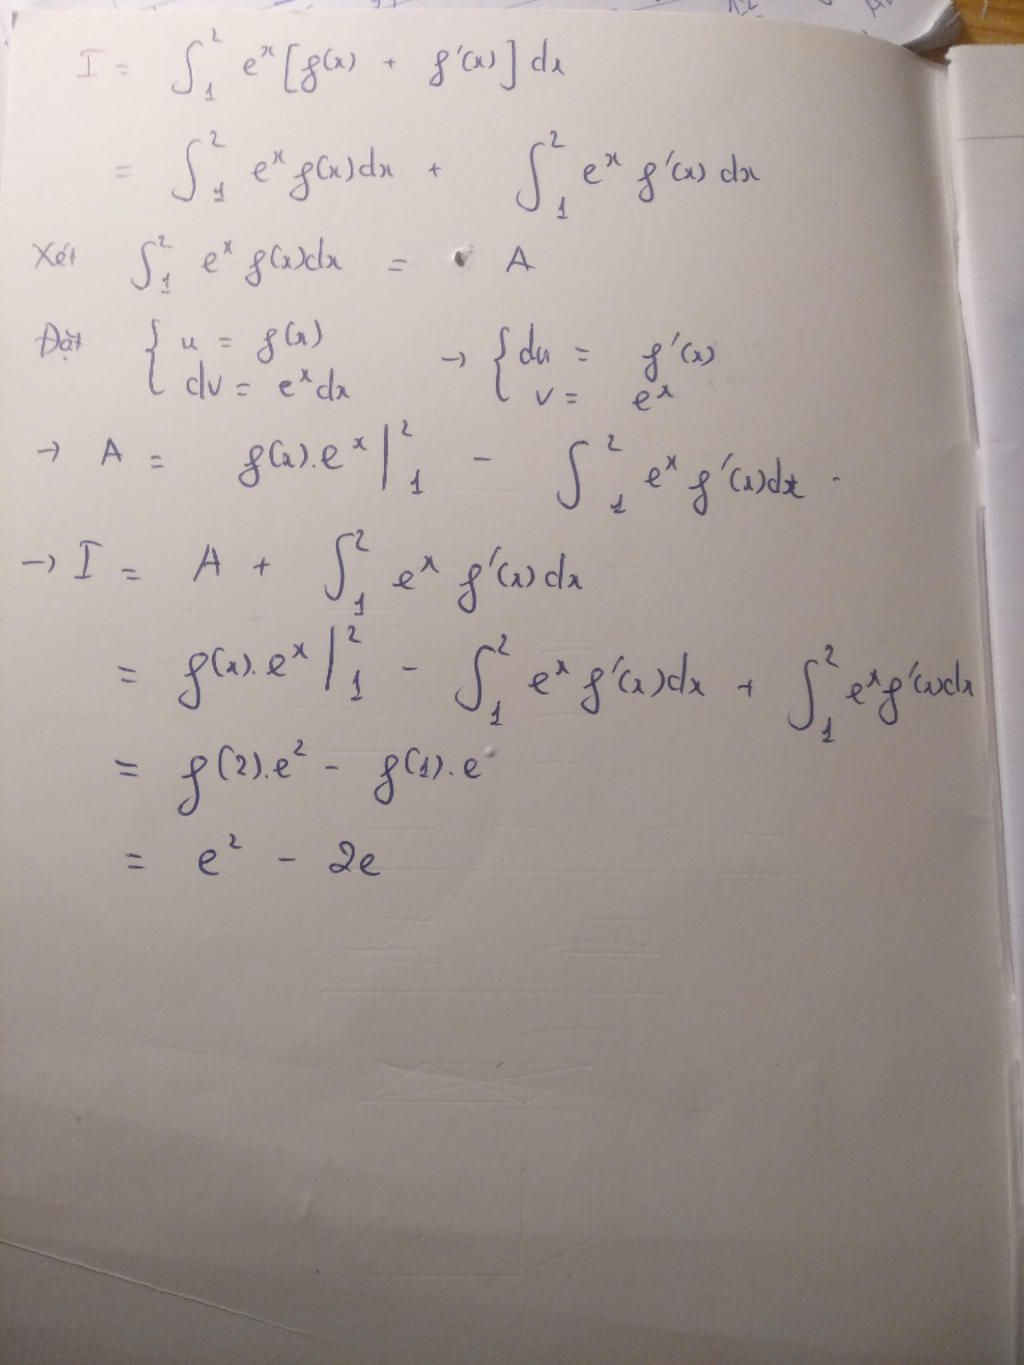 I = ∫₁² eˣ [f(x) + f'(x)] dx
= ∫₁² eˣ f(x) dx + ∫₁² eˣ f'(x) dx
Xét ∫₁² eˣ f(x) dx = A
Đặt { u = f(x) → { du = f'(x)
dv = eˣ dx v = eˣ
→ A = f(x).eˣ |₁² - ∫₁² eˣ f'(x) dx
→ I = A + ∫₁² eˣ f'(x) dx
= f(x).eˣ |₁² - ∫₁² eˣ f'(x) dx + ∫₁² eˣ f'(x) dx
= f(2).e² - f(1).e
= e² - 2e